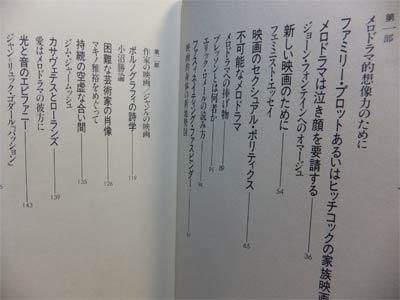 第一部
メロドラマ的想像力のために
ファミリー・プロットあるいはヒッチコックの家族映画
メロドラマは泣き顔を要請する
36
ジョーン・フォンテインへのオマージュ
新しい映画のために
54
フェミニスト・エッセイ
映画のセクシュアル・ポリティクス
45
不可能なメロドラマ
メロドラマへの捧げ物
89
ブレッソンとは何者か
91
エリック・ロメールの読み方
94
ファスヴィネイティング・ファスビンダー
第二部
作家の映画/ジャンルの映画
小沼勝論
ポルノグラフィの詩学
119
困難な芸術家の肖像
126
マキノ雅裕をめぐって
持続の空虚な合い間
135
ジム・ジャームッシュ
カサヴェテスとローランズ
139
愛はメロドラマの彼方に
光と音のエピファニー
143
ジャン=リュック・ゴダール『パッション』